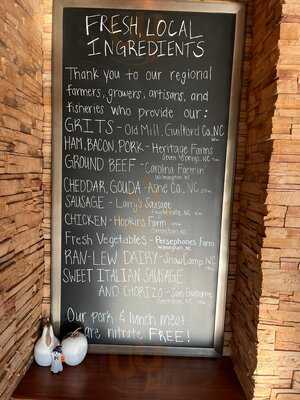 FRESH, LOCAL
INGREDIENTS
Thank you to our regional
farmers, growers, artisans, and
fisheries who provide our:
GRITS - Old Mill, Guilford Co, NC
HAM, BACON, PORK - Heritage Farms
NC
GROUND BEEF - Carolina Farmin'
Wilmington, NC
CHEDDAR, GOUDA - Ashe Co., NC
SAUSAGE - Larry's Sausage
NC
CHICKEN - Hopkins Farm
Fresh Vegetables - Persephone's Farm
Wilmington, NC
RAN-LEW DAIRY - Snow Camp, NC
SWEET ITALIAN SAUSAGE
AND CHORIZO - San Giuseppe
Our pork & lunch meat
are nitrate FREE!